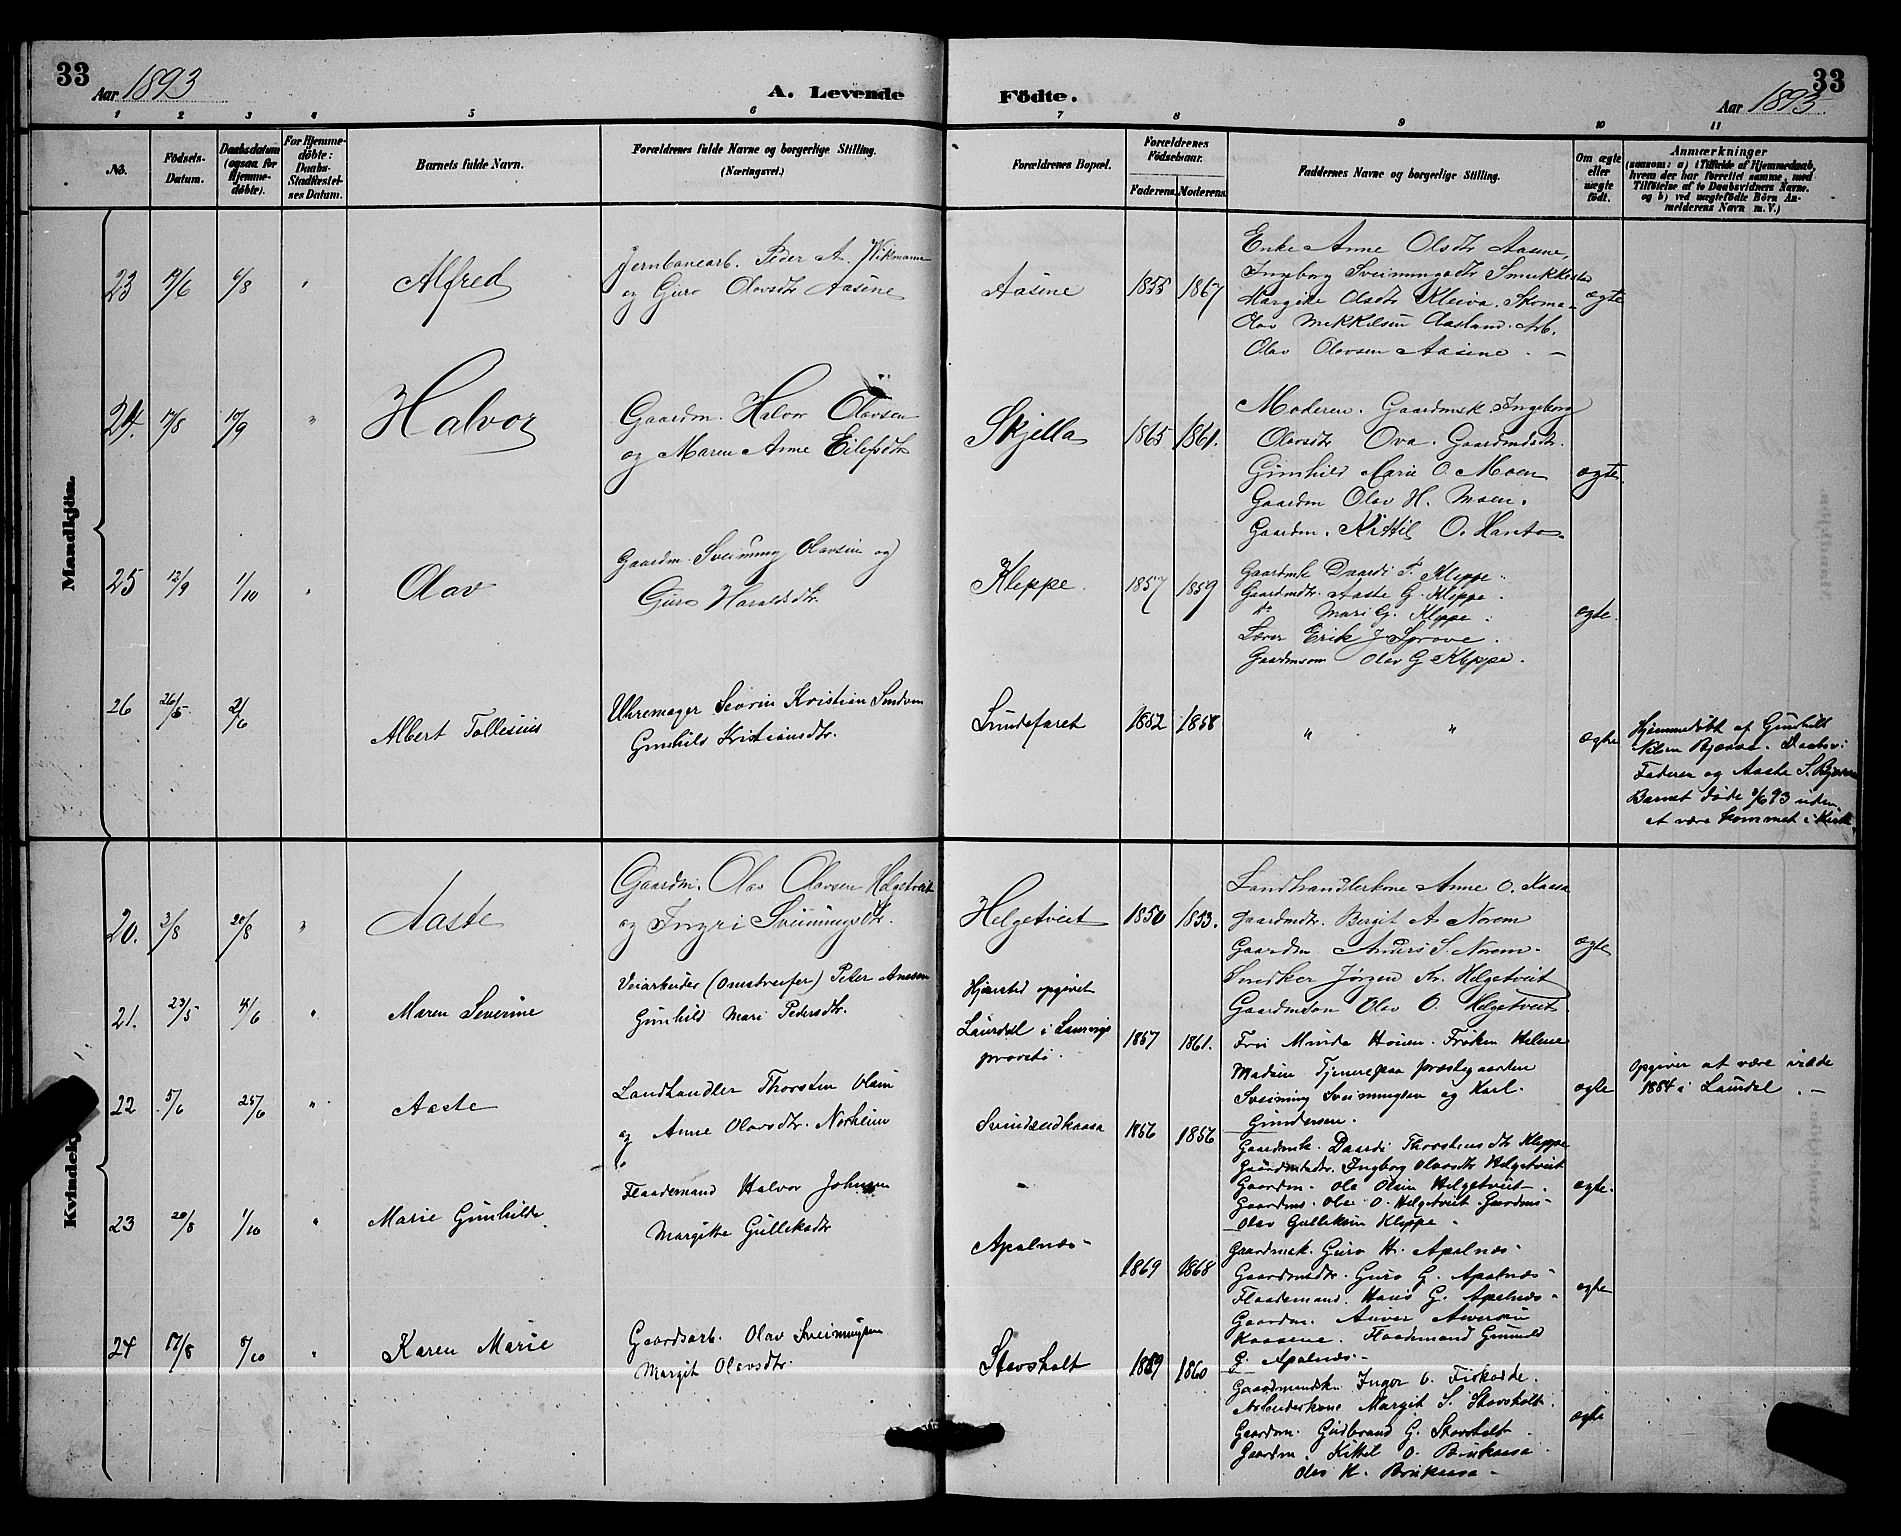 33
Aar 1893
A. Levende
Födte.
Aar 1893
33
1 2 3 4 5 6 7 8 9 10 11
No.
Födsels-
Datum.
Daabsdatum
(ogsaa for
Hjemme-
döbte).
For Hjemme-
döbte:
Daabs-
Stadfæstel-
ses Datum.
Barnets fulde Navn.
Forældrenes fulde Navne og borgerlige Stilling.
(Næringsvei.)
Forældrenes Bopæl.
Forældrenes
Födselsaar.
Faderens. Moderens.
Faddernes Navne og borgerlige Stilling.
Om ægte
eller
uægte
födt.
Anmærkninger
(saasom: a) i Tilfælde af Hjemmedaab,
hvem der har forrettet samme, med
Tilföielse af to Daabsvidners Navne,
og b) ved uægtefödte Börn An-
melderens Navn m. V.)
Mandkjön.
23
6/8
Alfred
Jernbanearb. Peder A. Wikmann
og Guro Olavsdtr Aasene
Aasene
1855 1867
Enke Anne Olsdtr Aasene,
Ingeborg Sveinungsdtr
Margithe Olsdtr Kleiva. Skoma-
Olav Mikkelsen Aasland. Arb.
Olav Olavsen Aasene. —
ægte
24.
17/8
17/9
Halvor
Gaardm. Halvor Olavsen
og Maren Anne Eilefsdtr
Skjella
1865 1861.
Moderen. Gaardmsk Ingeborg
Olavsdtr Ova. Gaardmdtr.
Gunhild Marie O. Moen
Gaardm Olav H. Moen.
Gaardm. Kittil O. Hanto.
ægte.
25
12/9
1/10
Olav
Gaardm. Sveinung Olavsen og
Guro Haraldsdtr.
Kleppe.
1857 1859
Gaardmk Daardi T. Kleppe.
Gaardmdtr. Aaste G. Kleppe.
do Mari G. Kleppe.
Lærer Erik J. Sprove.
Gaardmsøn Olav G Kleppe.
ægte.
26
26/5
2/6
Albert Tollesius
Uhrmager Severin Kristian
Gunhild Kristiansdtr.
Lundefaret
1852 1858
" "
ægte
Hjemmedöbt af Gunhild
Nilsen Daabsv:
Faderen og Aaste S.
Barnet døde 3/6 93 uden
at være kommet i Kirke.
Kvindekj
20.
3/8
20/8
"
Aaste
Gaardm. Olav Olavsen Helgetveit
og Ingri Sveinungsdtr.
Helgetveit
1850 1853.
Landhandlerkone Anne O. Kaasa
Gaardmdtr. Bergit A. Norem
Gaardm Anders S. Norem.
Snedker Jørgen Tr. Helgetveit
Gaardmsøn Olav O. Helgetveit.
ægte
21.
23/5
4/6
"
Maren Severine
Veiarbeider (Omstreifer) Peter Anesen
Gunhild Mari Pedersdtr.
Hjemsted opgivet
Laurdal i
provsti.
1857 1861.
Fru Minda Houen. Frøken Helene
Madsen Tjenere paa præstegaarden
Sveinung Sveinungsen og Karl
Gundersen.
ægte
Opgiver at være viede
1884 i Laurdal. —
22
5/6
25/6
"
Aaste
Landhandler Thorsten Olsen
og Anne Olavsdtr. Norheim
Svindsundkaasa
1856 1856
Gaardmk. Daardi Thorstensdtr Kleppe
Gaardmdtr. Ingborg Olavsdtr Helgetveit
Gaardm. Ole Olsen Helgetveit.
Gaardms. Ole O. Helgetveit. Gaardms-
Olav Gulleksen Kleppe.
ægte.
23
20/8
1/10
"
Marie Gunhilde
Flaademand Halvor Johnsen
Margithe Gulleksdtr
Apalnæs
1869 1868
Gaardmsk. Guro H. Apalnæs.
Gaardmsdtr. Guro G. Apalnæs.
Flaademand. Hans G. Apalnæs.
Gaardm. Anver Anversen
Kaasene. Flaademand Gunuld
G. Apalnæs.
ægte
24
17/8
8/10
"
Karen Marie
Gaardsarb. Olav Sveinungsen
Margit Olavsdtr.
Stavsholt
1859 1860
Gaardmandsk. Inger O.
Arbeiderkone Margit S. Stavsholt.
Gaardm. Gudbrand G. Stavsholt.
Gaardm. Kittel O.
Olav K.
ægte